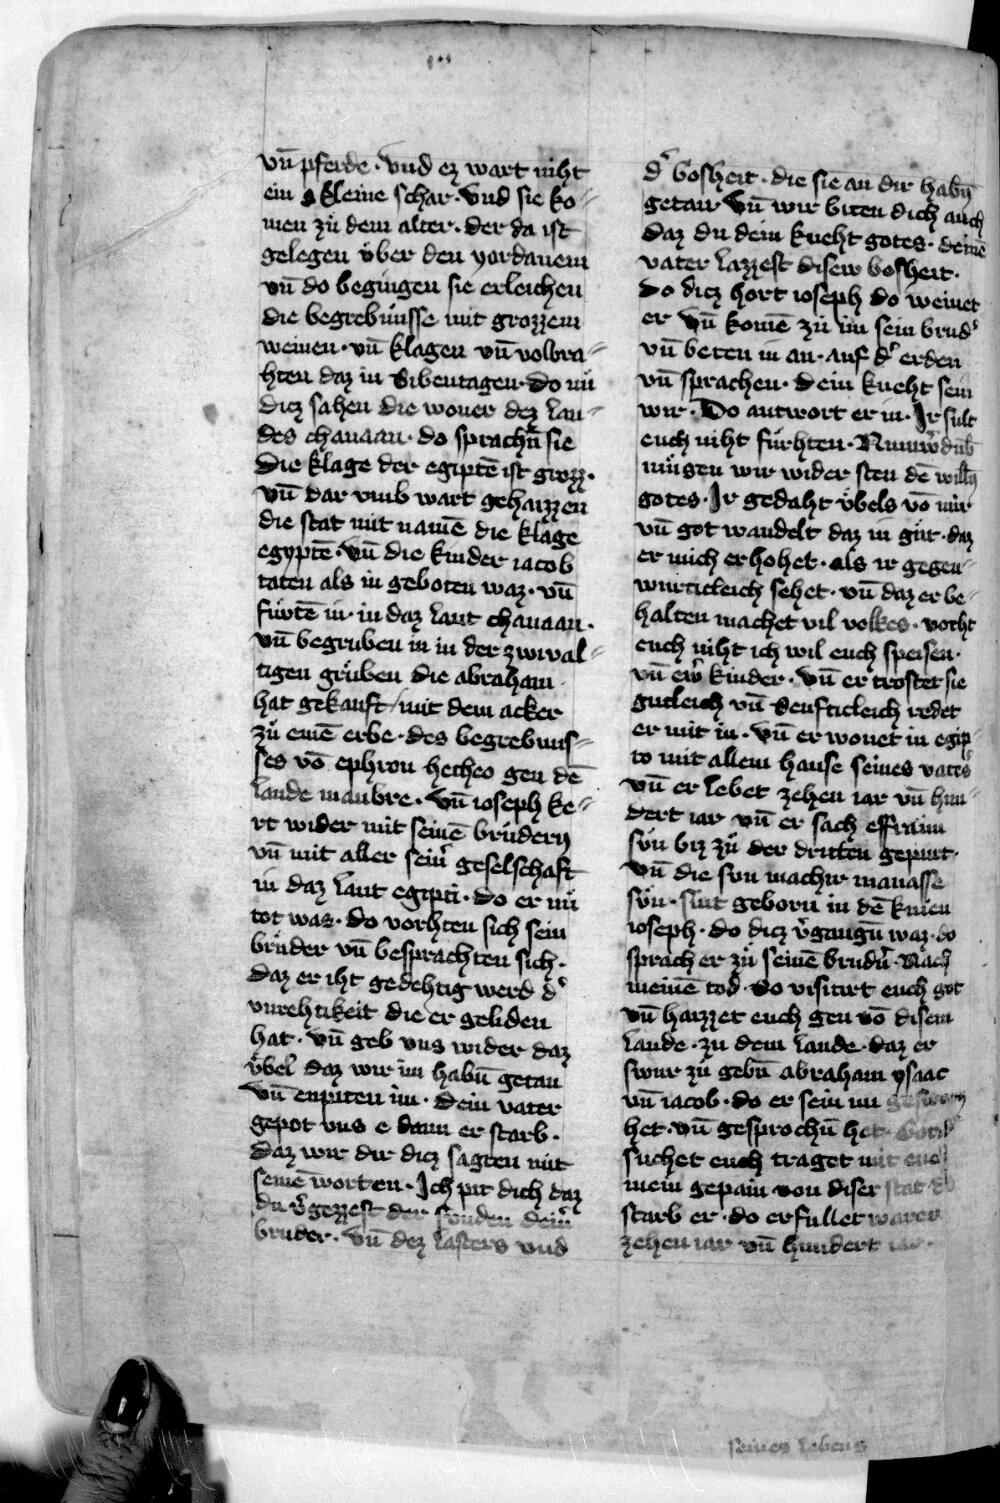 vn̄ pferde · Vnd ez wart niht
ein kleine schar · Vnd sie ko-
men zu̍ dem alter · der da ist
gelegen v̍ber den yordanem
vn̄ do begingen sie erleichen
die begrebnu̍sse mit grozzem
weinen · vn̄ klagen vn̄ volbra-
hten daz in Sibentagen · do nu̍
dicz sahen die woner dez lan-
des chanaan · do sprachn̄ sie
Die klage der egiptē ist grozz ·
vn̄ dar vmb wart gehaizzen
die stat mit namē die klage
egyptē · Vn̄ die kinder iacob
taten als in geboten waz · vn̄
fu̍rtē in · in daz lant chanaan ·
vn̄ begruben in in der zwiual-
tigen gru̍ben die abraham
hat gekauft mit dem acker
zu̍ einē erbe · des begrebnus-
ses vō ephron hetheo gen dē
lande manbre · Vn̄ ioseph ke-
rt wider mit seinē bru̍dern
vn̄ mit aller sein̄ geselschaft
in daz lant egipti · do er nu̍
tot was · do vorhten sich sein
bru̍der vn̄ besprachten sich ·
daz er iht gedehtig werd d̓
vnrehtikeit die er geliden
hat · vn̄ geb vns wider daz
v̍bel daz wir im habn̄ getan
Vn̄ enpiten im · dein vater
gepot vns e dann er starb ·
daz wir dir dicz sagten mit
seinē worten · Ich pit dich daz
du v̓gezzest der sunden dein̓
bruder · vn̄ dez lasters vnd
d̓ bosheit · die sie an dir habn̄
getan Vn̄ wir biten dich auch
daz du dem kneht gotes · deinē
vater lazzest disew bosheit ·
Do dicz hort ioseph do weinet
er Vn̄ komē zu̍ im sein brud̓
vn̄ beten in an · auf d̓ erden
vn̄ sprachen · dein kneht sein
wir · Do antwort er in · Ir sult
euch niht fu̍rhten ·
mu̍gen wir wider sten dē willn̄
gotes · Ir gedaht v̍bels vō mir
vn̄ got wandelt daz in gu̍t · daz
er mich erhohet · als ir gegen-
wurticleich sehet · vn̄ daz er be-
halten machet vil volkes · vorht
euch niht ich wil euch speisen ·
vn̄ ew̓ kinder · Vn̄ er trostet sie
gutleich vn̄ senfticleich redet
er mit in · Vn̄ er wonet in egip-
to mit allem hause seines vat̓s
Vn̄ er lebet zehen iar vn̄ hun-
dert iar vn̄ er sach effraim
su̍n biz zu̍ der dritten gepurt ·
Vn̄ die sun machir manasse
su̍n · sint geborn in dē knien
ioseph · do dicz v̓gangn̄ waz · do
sprach er zu̍ seinē brudn̓ · Nach
meinē tod · So visitirt euch got
vn̄ haizzet euch gen vō disem
lande · zu dem lande · daz er
swur zu̍ gebn̄ abraham ysaac
vn̄ iacob · do er sein nu
het · vn̄ gesprochn̄ het
suchet euch traget mit euch
mein gepain von diser stat · do
starb er · do erfullet waren
zehen iar vn̄ hundert iar ·
seines lebens